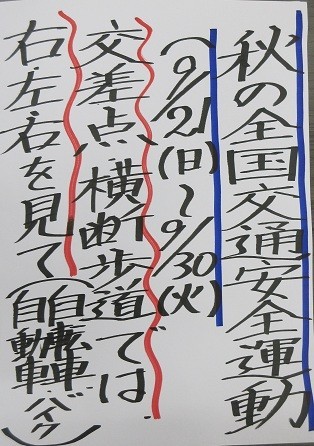 秋の全国交通安全運動
(9/21(日)~9/30(火)
交差点、横断歩道では
右・左・右を見て(自転車バイク
自動車)